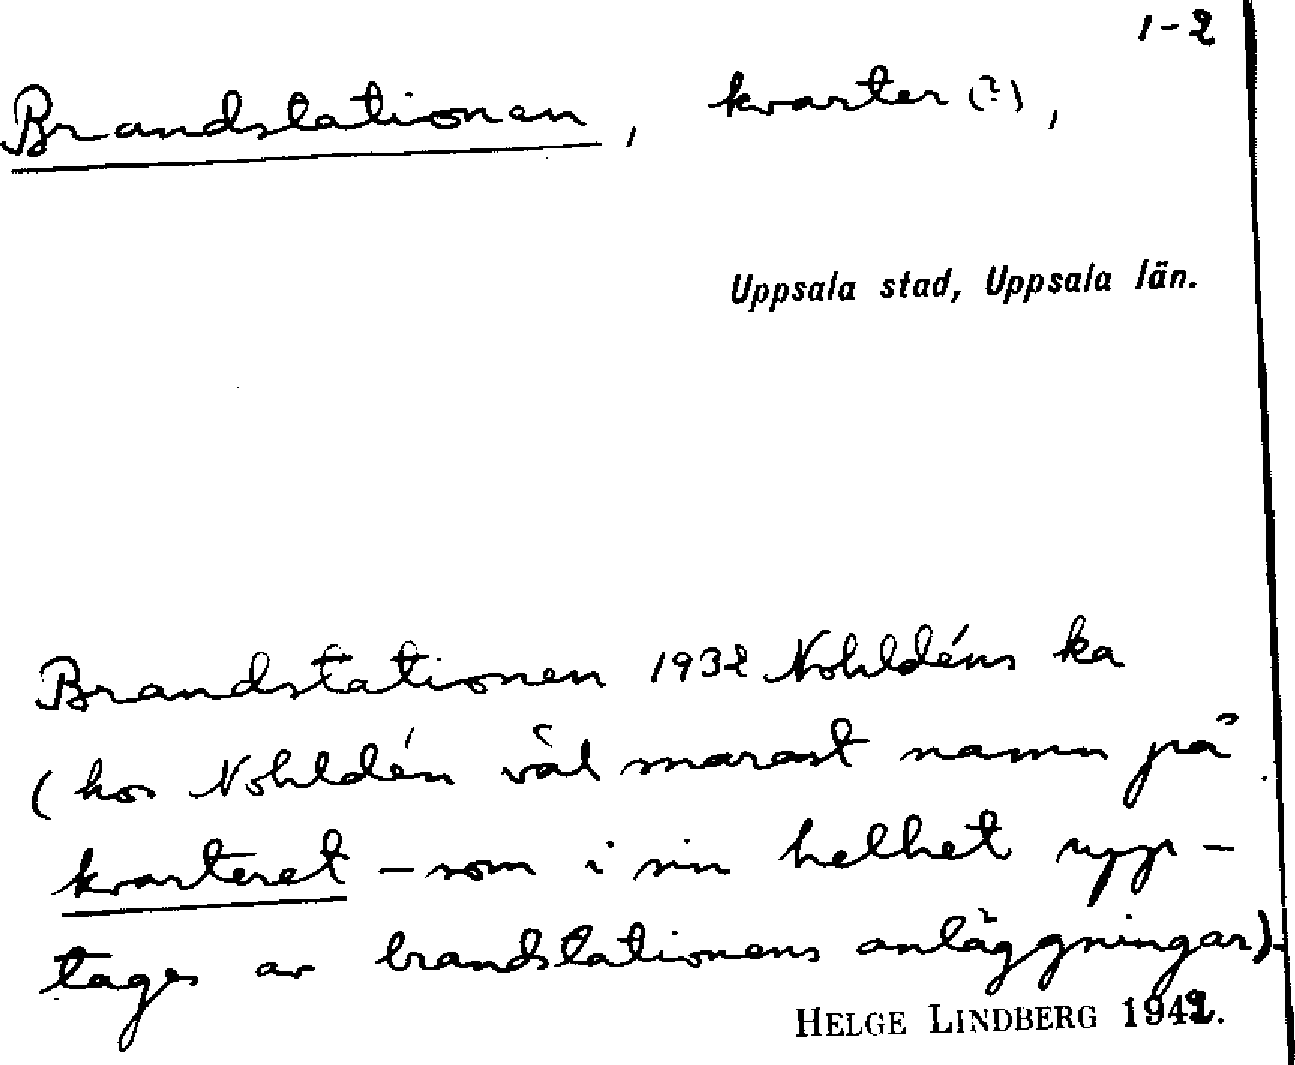 1-2
Brandstationen, kvarter (?),
Uppsala stad, Uppsala län.
Brandstationen 1932 Nohldéns ka
(hos Nohldén väl marast namn på
kvarteret - som i sin helhet upp-
tages av brandstationens anläggningar).
HELGE LINDBERG 1942.